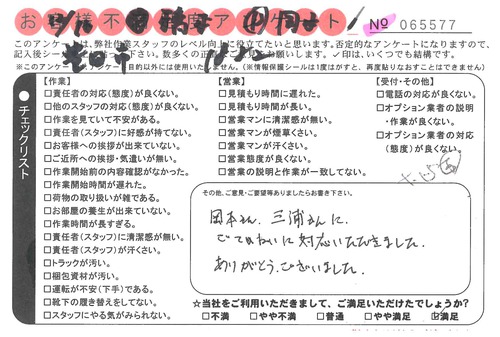 お客様不満足度アンケート!
№ 065577
このアンケートは、弊社作業スタッフのレベル向上に役立てたいと思います。否定的なアンケートになりますので、
※このアンケートはチェック目的以外には使用いたしません。(※情報保護シールは1度はがすと、再度貼りなおすことはできません)
●チェックリスト
【作業】
□責任者の対応(態度)が良くない。
□他のスタッフの対応(態度)が良くない。
□作業を見ていて不安がある。
□責任者(スタッフ)に好感が持てない。
□お客様への挨拶が出来ていない。
□ご近所への挨拶・気遣いが無い。
□作業開始前の内容確認がなかった。
□作業開始時間が遅れた。
□荷物の取り扱いが雑である。
□お部屋の養生が出来ていない。
□作業時間が長すぎる。
□責任者(スタッフ)に清潔感が無い。
□責任者(スタッフ)が汗くさい。
□トラックが汚い。
□梱包資材が汚い。
□運転が不安(下手)である。
□靴下の履き替えをしてない。
□スタッフにやる気がみられない。
【営業】
□見積もり時間に遅れた。
□見積もり時間が長い。
□営業マンに清潔感が無い。
□営業マンが煙草くさい。
□営業マンが汗くさい。
□営業態度が良くない。
□営業の説明と作業が一致してない。
【受付・その他】
□電話の対応が良くない。
□オプション業者の説明
・作業が良くない。
□オプション業者の対応
(態度)が良くない。
その他、ご意見・ご要望等ありましたらお書き下さい。
岡本さん、三浦さんに、
とてもていねいに対応いただきました。
ありがとうございました。
☆当社をご利用いただきまして、ご満足いただけたでしょうか?
□不満 □やや不満 □普通 □やや満足 ☑満足